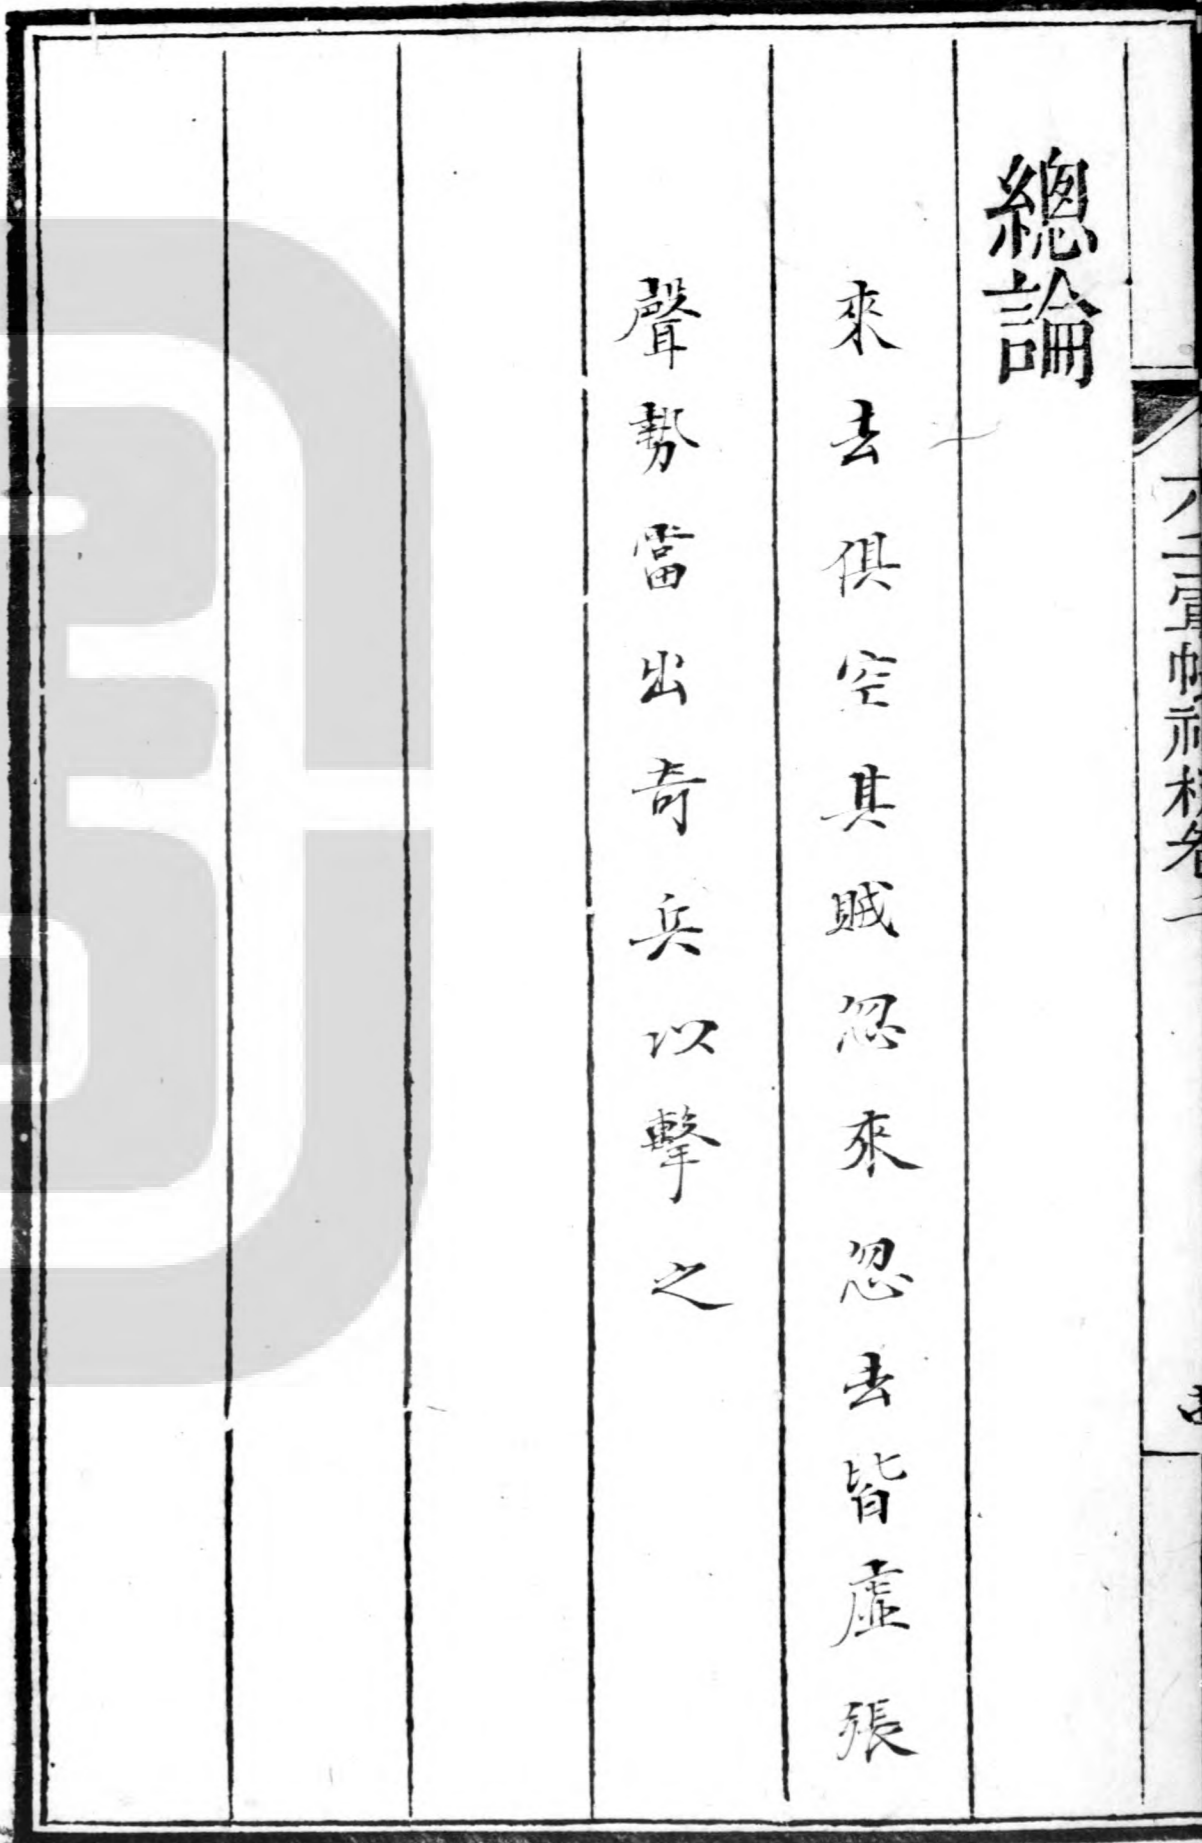 總論
來去俱空其賊忽來忽去皆虛張
聲勢當出奇兵以擊之